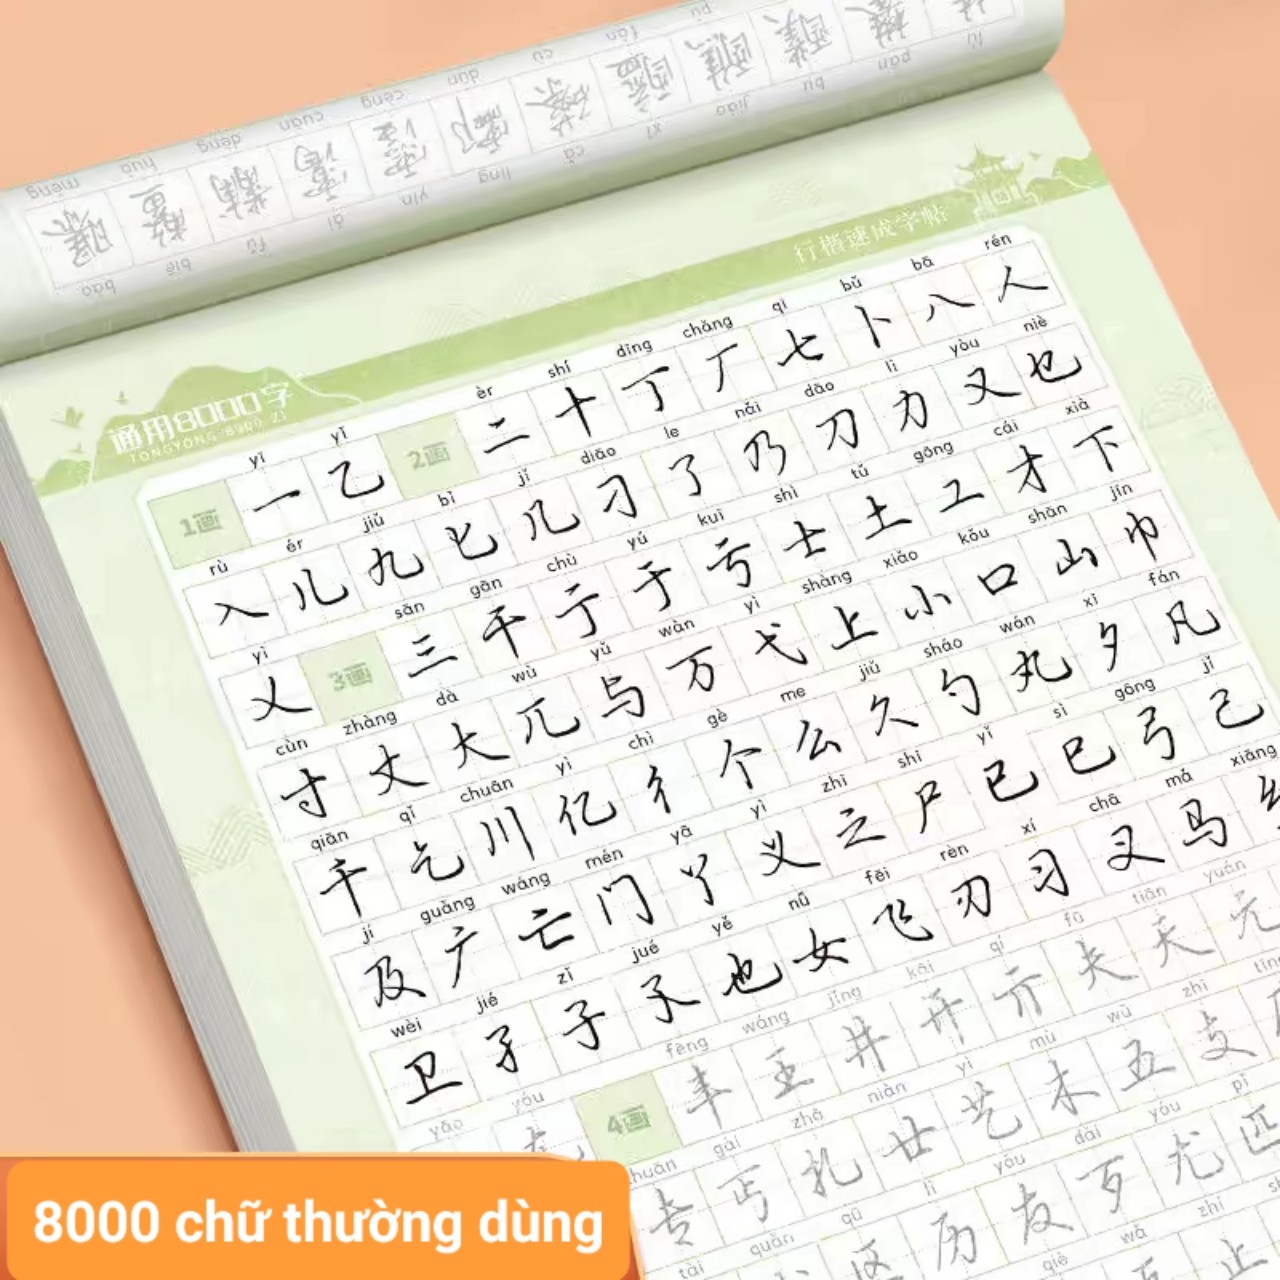 行楷速成字帖
通用8000字
TONGYONG 8000 ZI
yī yǐ èr shí dīng chǎng qī bǔ bā rén
1画 一 乙 2画 二 十 丁 厂 七 卜 八 人
rù ér jiǔ bǐ jǐ diāo le nǎi dāo lì yòu niè
入 儿 九 匕 几 刁 了 乃 刀 力 又 乜
yì sān gān chù yú kuī shì tǔ gōng cái xià
乂 3画 三 干 亍 于 亏 士 土 工 才 下
cùn zhàng dà wù yǔ wàn yì shàng xiǎo kǒu shān jīn
寸 丈 大 兀 与 万 弋 上 小 口 山 巾
qiān qǐ chuān yì chì gè me jiǔ sháo wán xī fán
千 乞 川 亿 彳 个 么 久 勺 丸 夕 凡
jí guǎng wáng mén yā yì zhī shī yǐ sì gōng jǐ
及 广 亡 门 丫 义 之 尸 已 巳 弓 己
wèi jié zǐ jué yě nǚ fēi rèn xí chā mǎ xiāng
卫 孑 子 孓 也 女 飞 刃 习 叉 马
yāo yóu fēng wáng jǐng kāi qí fū tiān yuán
4画 丰 王 井 开 亓 夫 天 元
gài zhā niàn yì mù wǔ zhī
丐 扎 廿 艺 木 五 支
qū lì yǒu dǎi yóu pǐ
区 历 友 歹 尤 匹
8000 chữ thường dùng